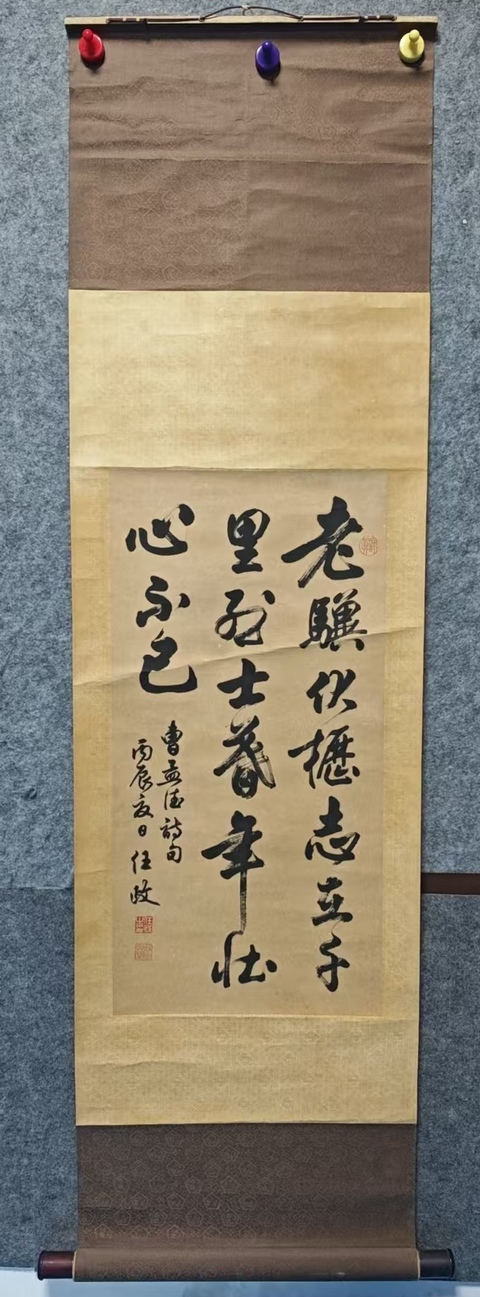 老驥伏櫪志在千
里烈士暮年壮
心不已
曹孟德詩句
丙辰夏日任政